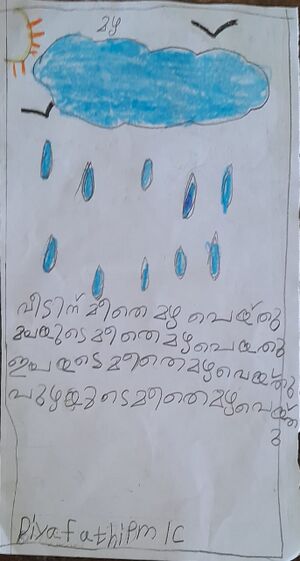 മഴ
വീടിന് മീതെ മഴ പെയ്തു
മലയുടെ മീതെ മഴ പെയതു
ഇലയുടെ മീതെ മഴ പെയ്തു
പുഴയുടെ മീതെ മഴ പെയ്ത
ു
Diya fathi Pm 1C